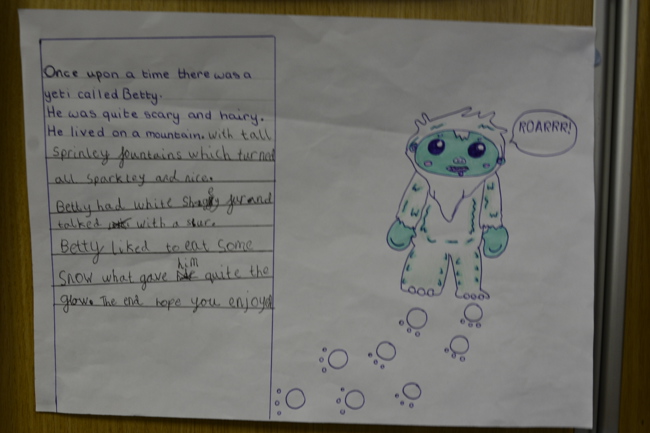 Once upon a time there was a
yeti called Betty.
He was quite scary and hairy.
He lived on a mountain. with tall
sprinley fountains which turned
all sparkley and nice.
Betty had white fur and
talked with a slur.
Betty liked to eat some
snow what gave him quite the
glow. The end hope you enjoyed
ROARRR!